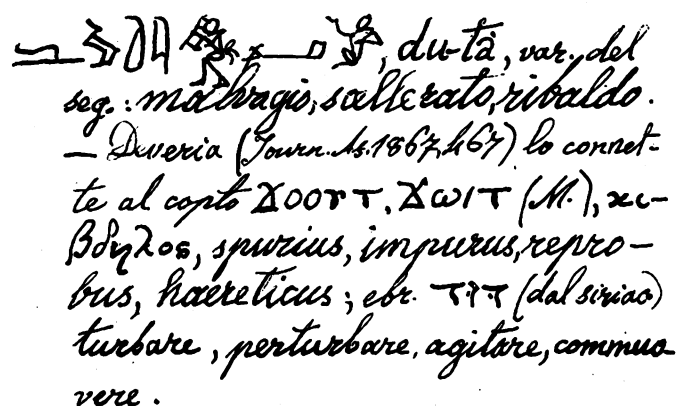 , du-tà, var. del
seg.: malvagio, scellerato, ribaldo.
— Deveria (Journ. As. 1867, 467) lo connet-
te al copto ϪΟΟΥΤ, ϪⲰⲒⲦ (M.), κι-
βδηλος, spurius, impurus, repro-
bus, haereticus; ebr. (dal siriaco)
turbare, perturbare, agitare, commuo
vere.